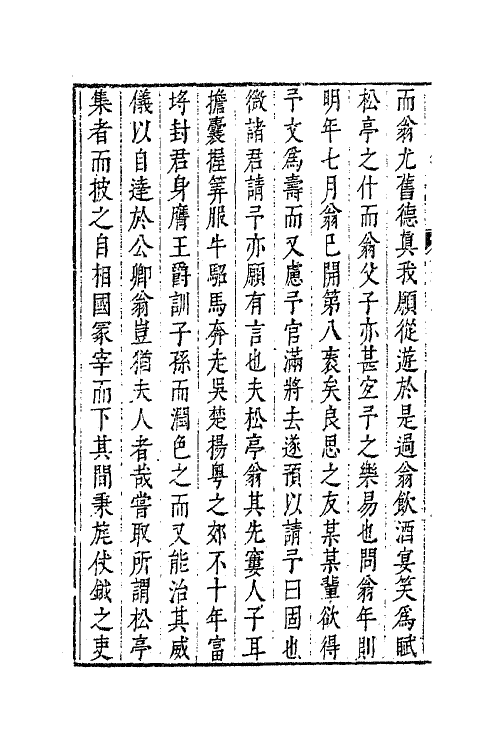 而翁尤舊德真我願從遊於是過翁飲酒宴笑為賦
松亭之什而翁父子亦甚宜予之樂易也問翁年則
明年七月翁已開第八袠矣良思之友某某輩欲得
予文為壽而又慮予官滿將去遂預以請予曰固也
微諸君請予亦願有言也夫松亭翁其先窶人子耳
擔囊握筭服牛駋馬奔走吳楚楊粵之郊不十年富
埒封君身膺王爵訓子孫而潤色之而又能治其威
儀以自達於公卿翁豈猶夫人者哉嘗取所謂松亭
集者而披之自相國冢宰而下其間秉旄伏鉞之吏